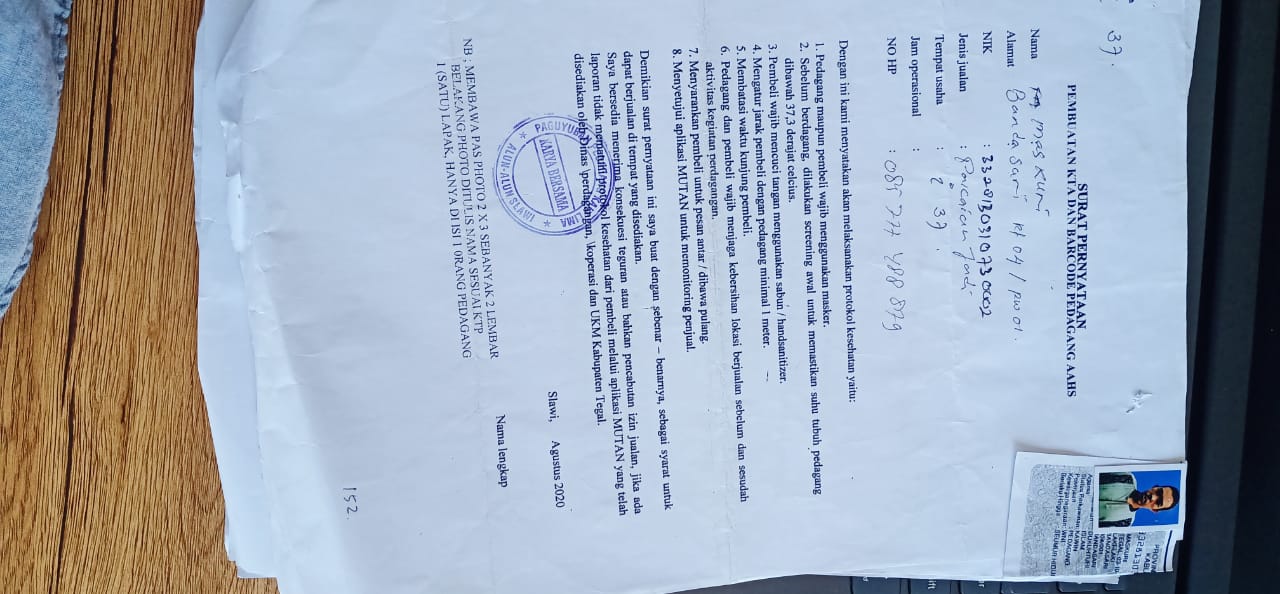 37.
SURAT PERNYATAAN
PEMBUATAN KTA DAN BARCODE PEDAGANG AAHS
Nama : Maskuri
Alamat Bandasari Rt 04 / RW 01.
NIK : 3328130310730002
Jenis jualan : Pakaian Jadi
Tempat usaha : 37.
Jam operasional :
NO HP : 089 777 488 879
Dengan ini kami menyatakan akan melaksanakan protokol kesehatan yaitu:
1. Pedagang maupun pembeli wajib menggunakan masker.
2. Sebelum berdagang, dilakukan screening awal untuk memastikan suhu tubuh pedagang
dibawah 37,3 derajat celcius.
3. Pembeli wajib mencuci tangan menggunakan sabun / handsanitizer.
4. Mengatur jarak pembeli dengan pedagang minimal 1 meter.
5. Membatasi waktu kunjung pembeli.
6. Pedagang dan pembeli wajib menjaga kebersihan lokasi berjualan sebelum dan sesudah
aktivitas kegiatan perdagangan.
7. Menyarankan pembeli untuk pesan antar / dibawa pulang.
8. Menyetujui aplikasi MUTAN untuk memonitoring penjual.
Demikian surat pernyataan ini saya buat dengan sebenar – benarnya, sebagai syarat untuk
dapat berjualan di tempat yang disediakan.
Saya bersedia menerima konsekuesi teguran atau bahkan pencabutan izin jualan, jika ada
laporan tidak mematuhi protokol kesehatan dari pembeli melalui aplikasi MUTAN yang telah
disediakan oleh Dinas perdagangan, koperasi dan UKM Kabupaten Tegal.
Slawi, Agustus 2020
Nama lengkap
KARYA BERSAMA
ALUN-ALUN SLAWI
NB : MEMBAWA PAS PHOTO 2 X 3 SEBANYAK 2 LEMBAR
BELAKANG PHOTO DITULIS NAMA SESUAI KTP
1 (SATU) LAPAK, HANYA DI ISI 1 ORANG PEDAGANG
152.